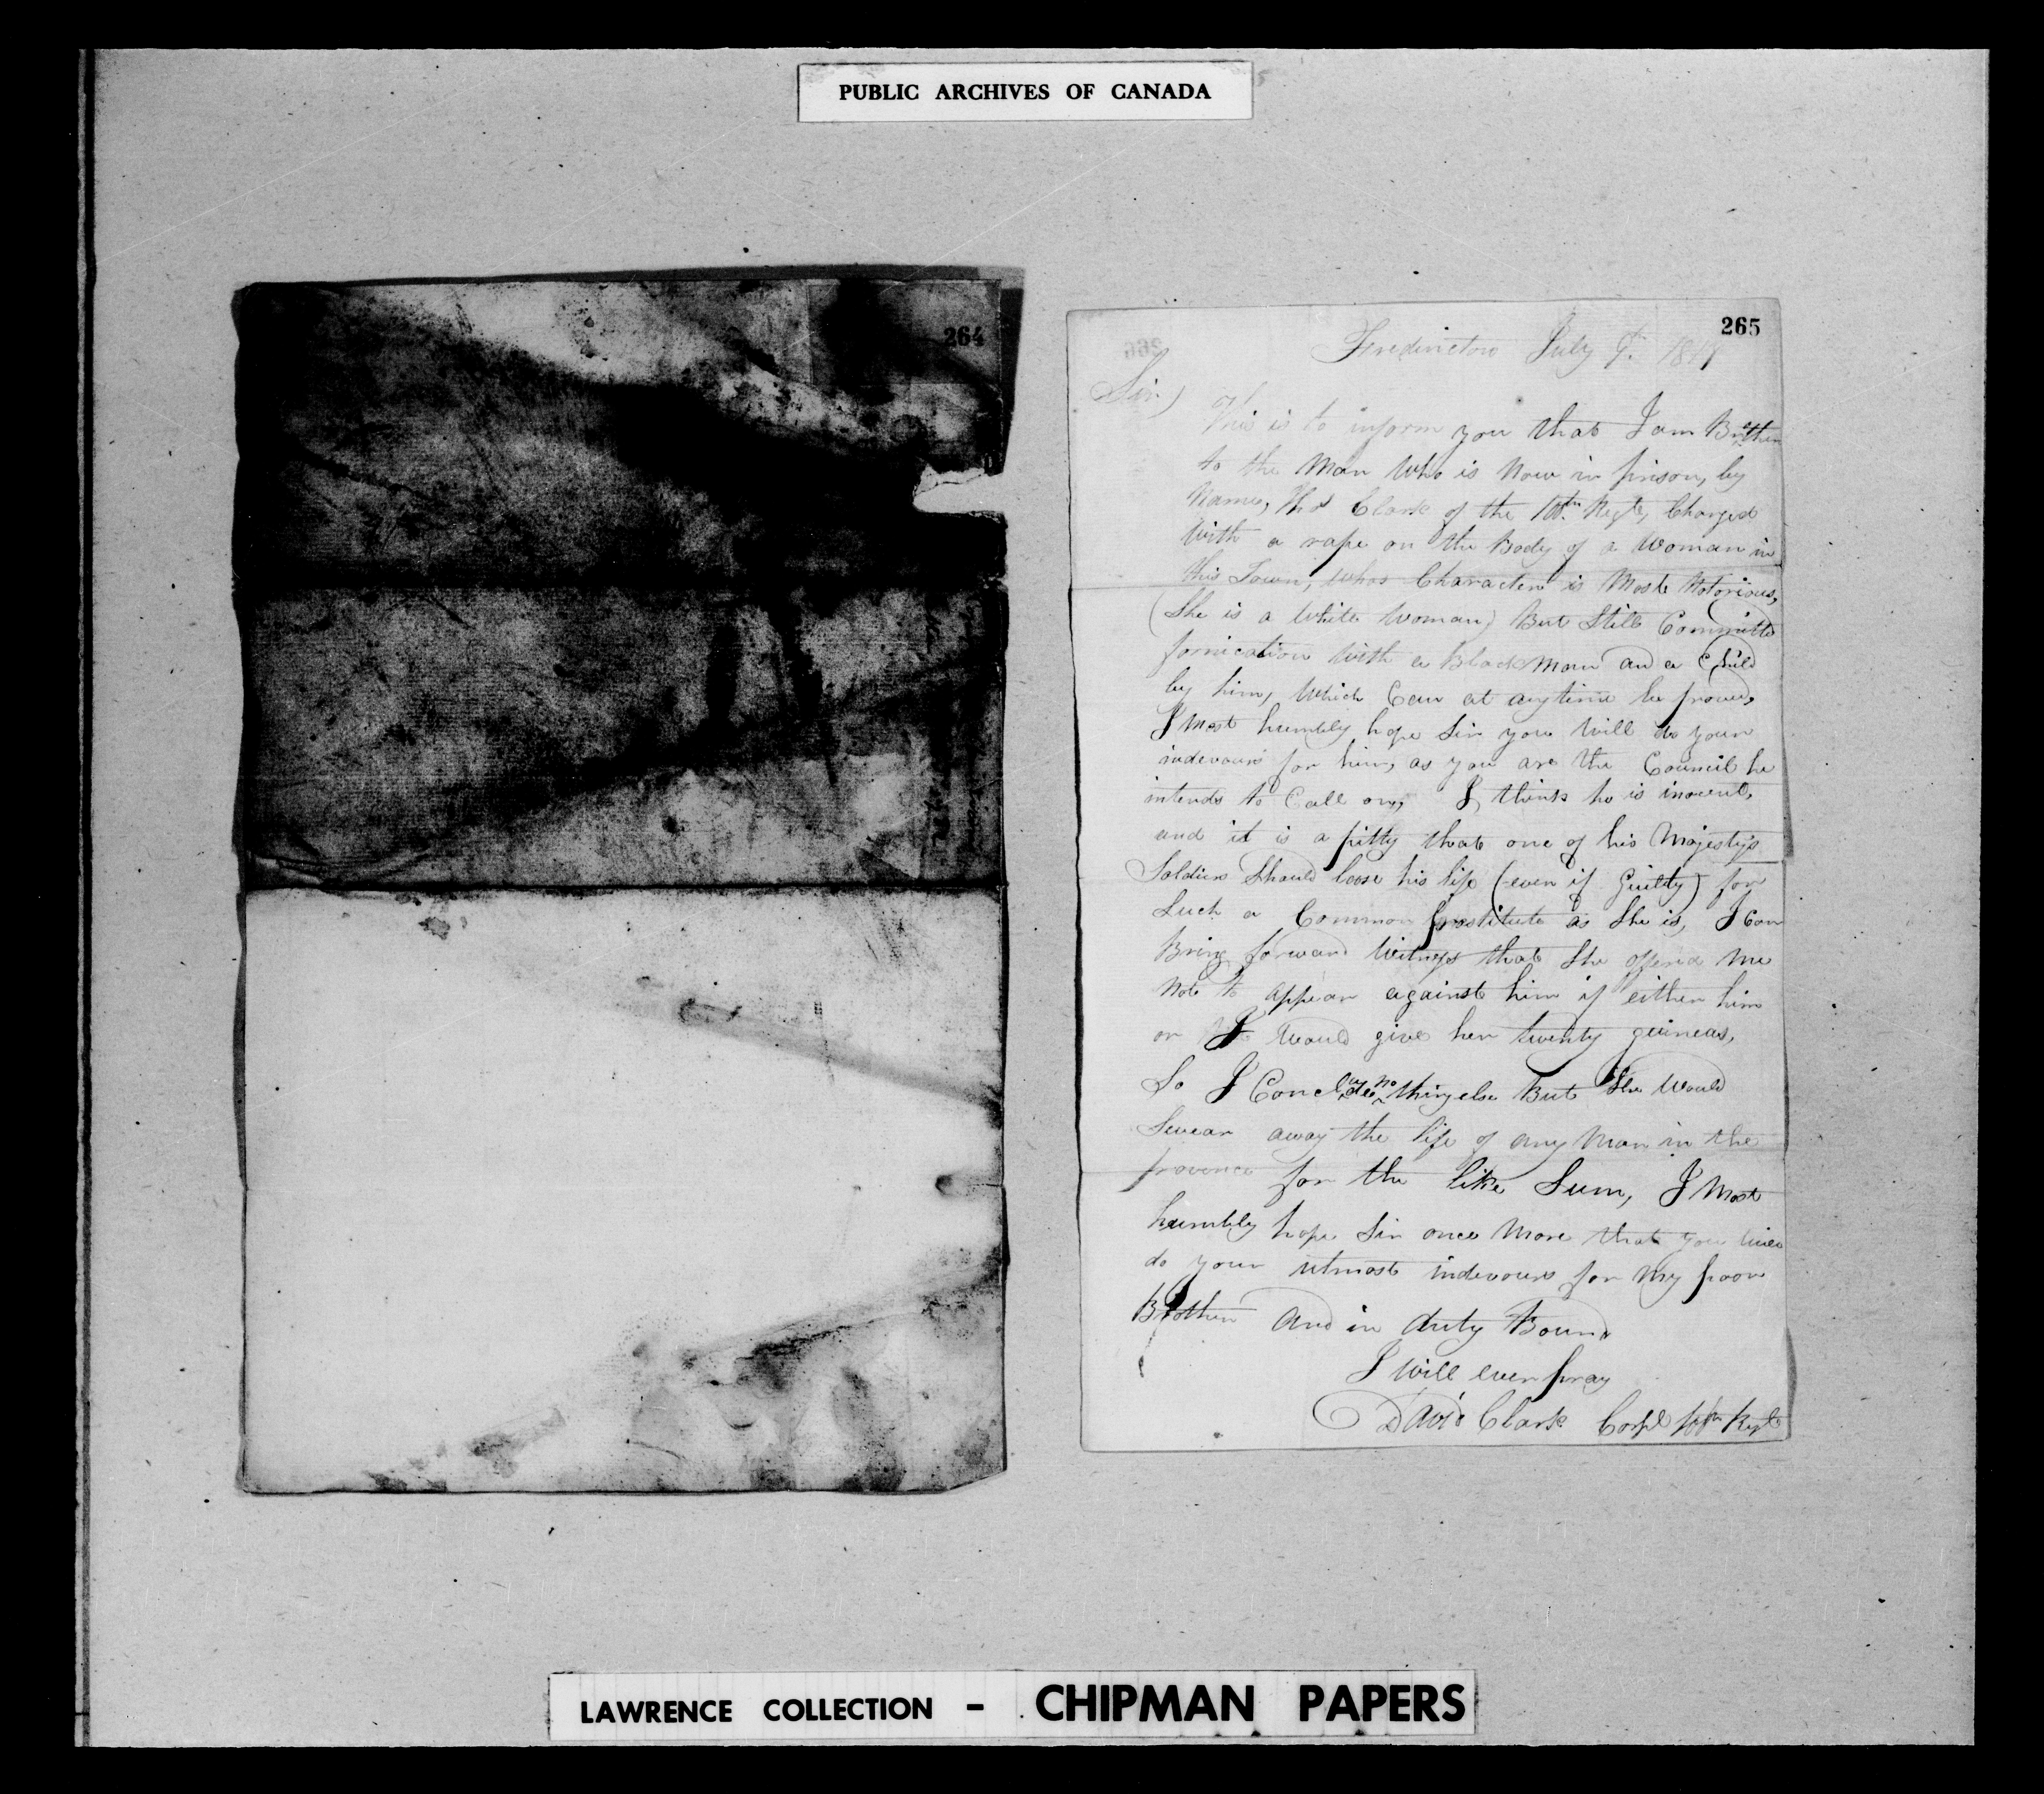 PUBLIC ARCHIVES OF CANADA
264
265
Fredericton July 9th 181
Sir)
This is to inform you that I am Brother
to the Man Who is Now in prison, by
Name, Thos Clark of the 10th Regt, Charged
With a rape on the Body of a Woman in
this Town, Whos Character is Most Notorious,
(She is a White Woman) But Still Committe
fornication With a Black Man and a Child
by him, Which Can at anytime be proved,
I Most humbly hope Sir you Will do your
indevours for him, as you are the Council he
intends to Call on, I think he is inocent,
and it is a pitty that one of his Majesty's
Soldiers Should loose his life (even if Guilty) for
Such a Common prostitute as She is, I Can
Bring forward Witness that She offered Me
Not to appear against him if either him
or I Would give her twenty guineas,
So I Conclude nothing else But She Would
Swear away the life of any Man in the
province for the like Sum, I Most
humbly hope Sir once More that you Will
do your utmost indevours for My poor
Brother and in duty Bound
I Will ever pray
David Clark Corpl Regt
LAWRENCE COLLECTION - CHIPMAN PAPERS